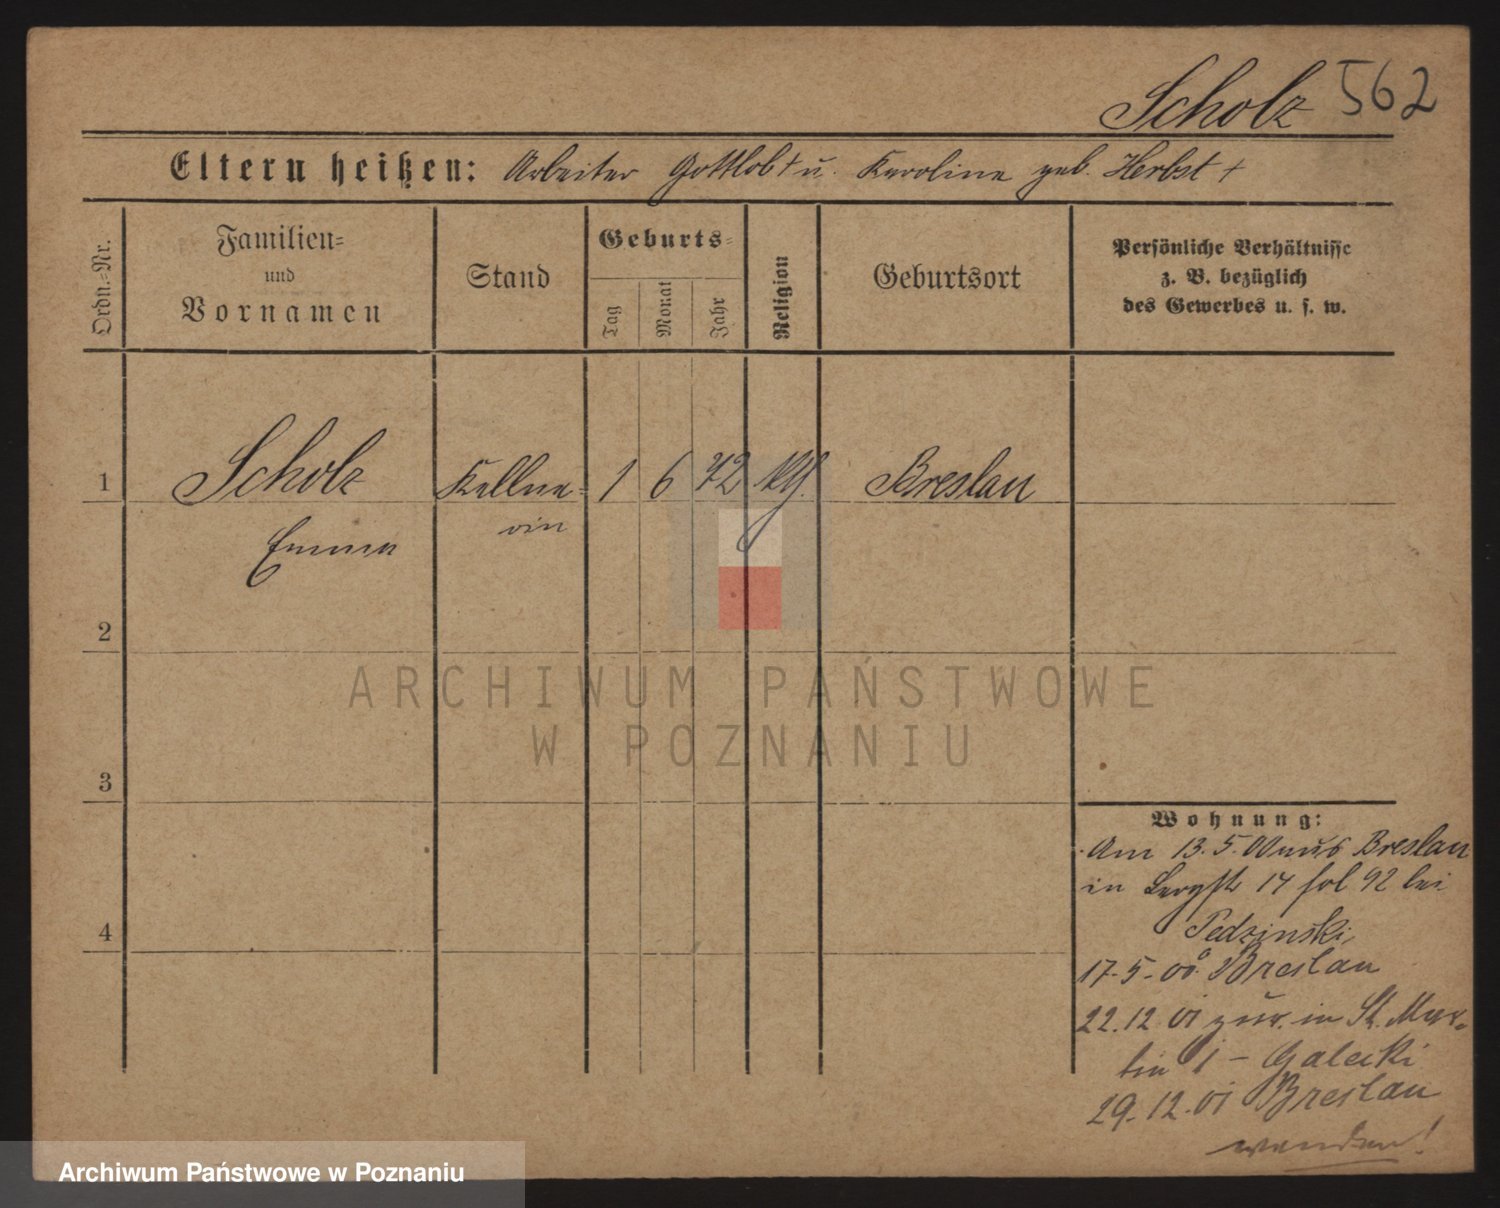 Scholz 562
Eltern heißen: Arbeiter Gottlob † u. Karoline geb. Herbst †
Ordn.=Nr.
Familien=
und
Vornamen
Stand
Geburts=
Tag
Monat
Jahr
Religion
Geburtsort
Persönliche Verhältnisse
z. B. bezüglich
des Gewerbes u. s. w.
1 Scholz Kellne= 1 6 72 Breslau
Emma rin
2
3
4
Wohnung:
Am 13. 5. 00 aus Breslau
in 14 fol 92 bei
Pedzinski,
17.5.00. Breslau
22.12.01 zur. in St. Mar=
tin 1 – Galecki
29.12.01 Breslau
wenden!
ARCHIWUM PAŃSTWOWE
W POZNANIU
Archiwum Państwowe w Poznaniu